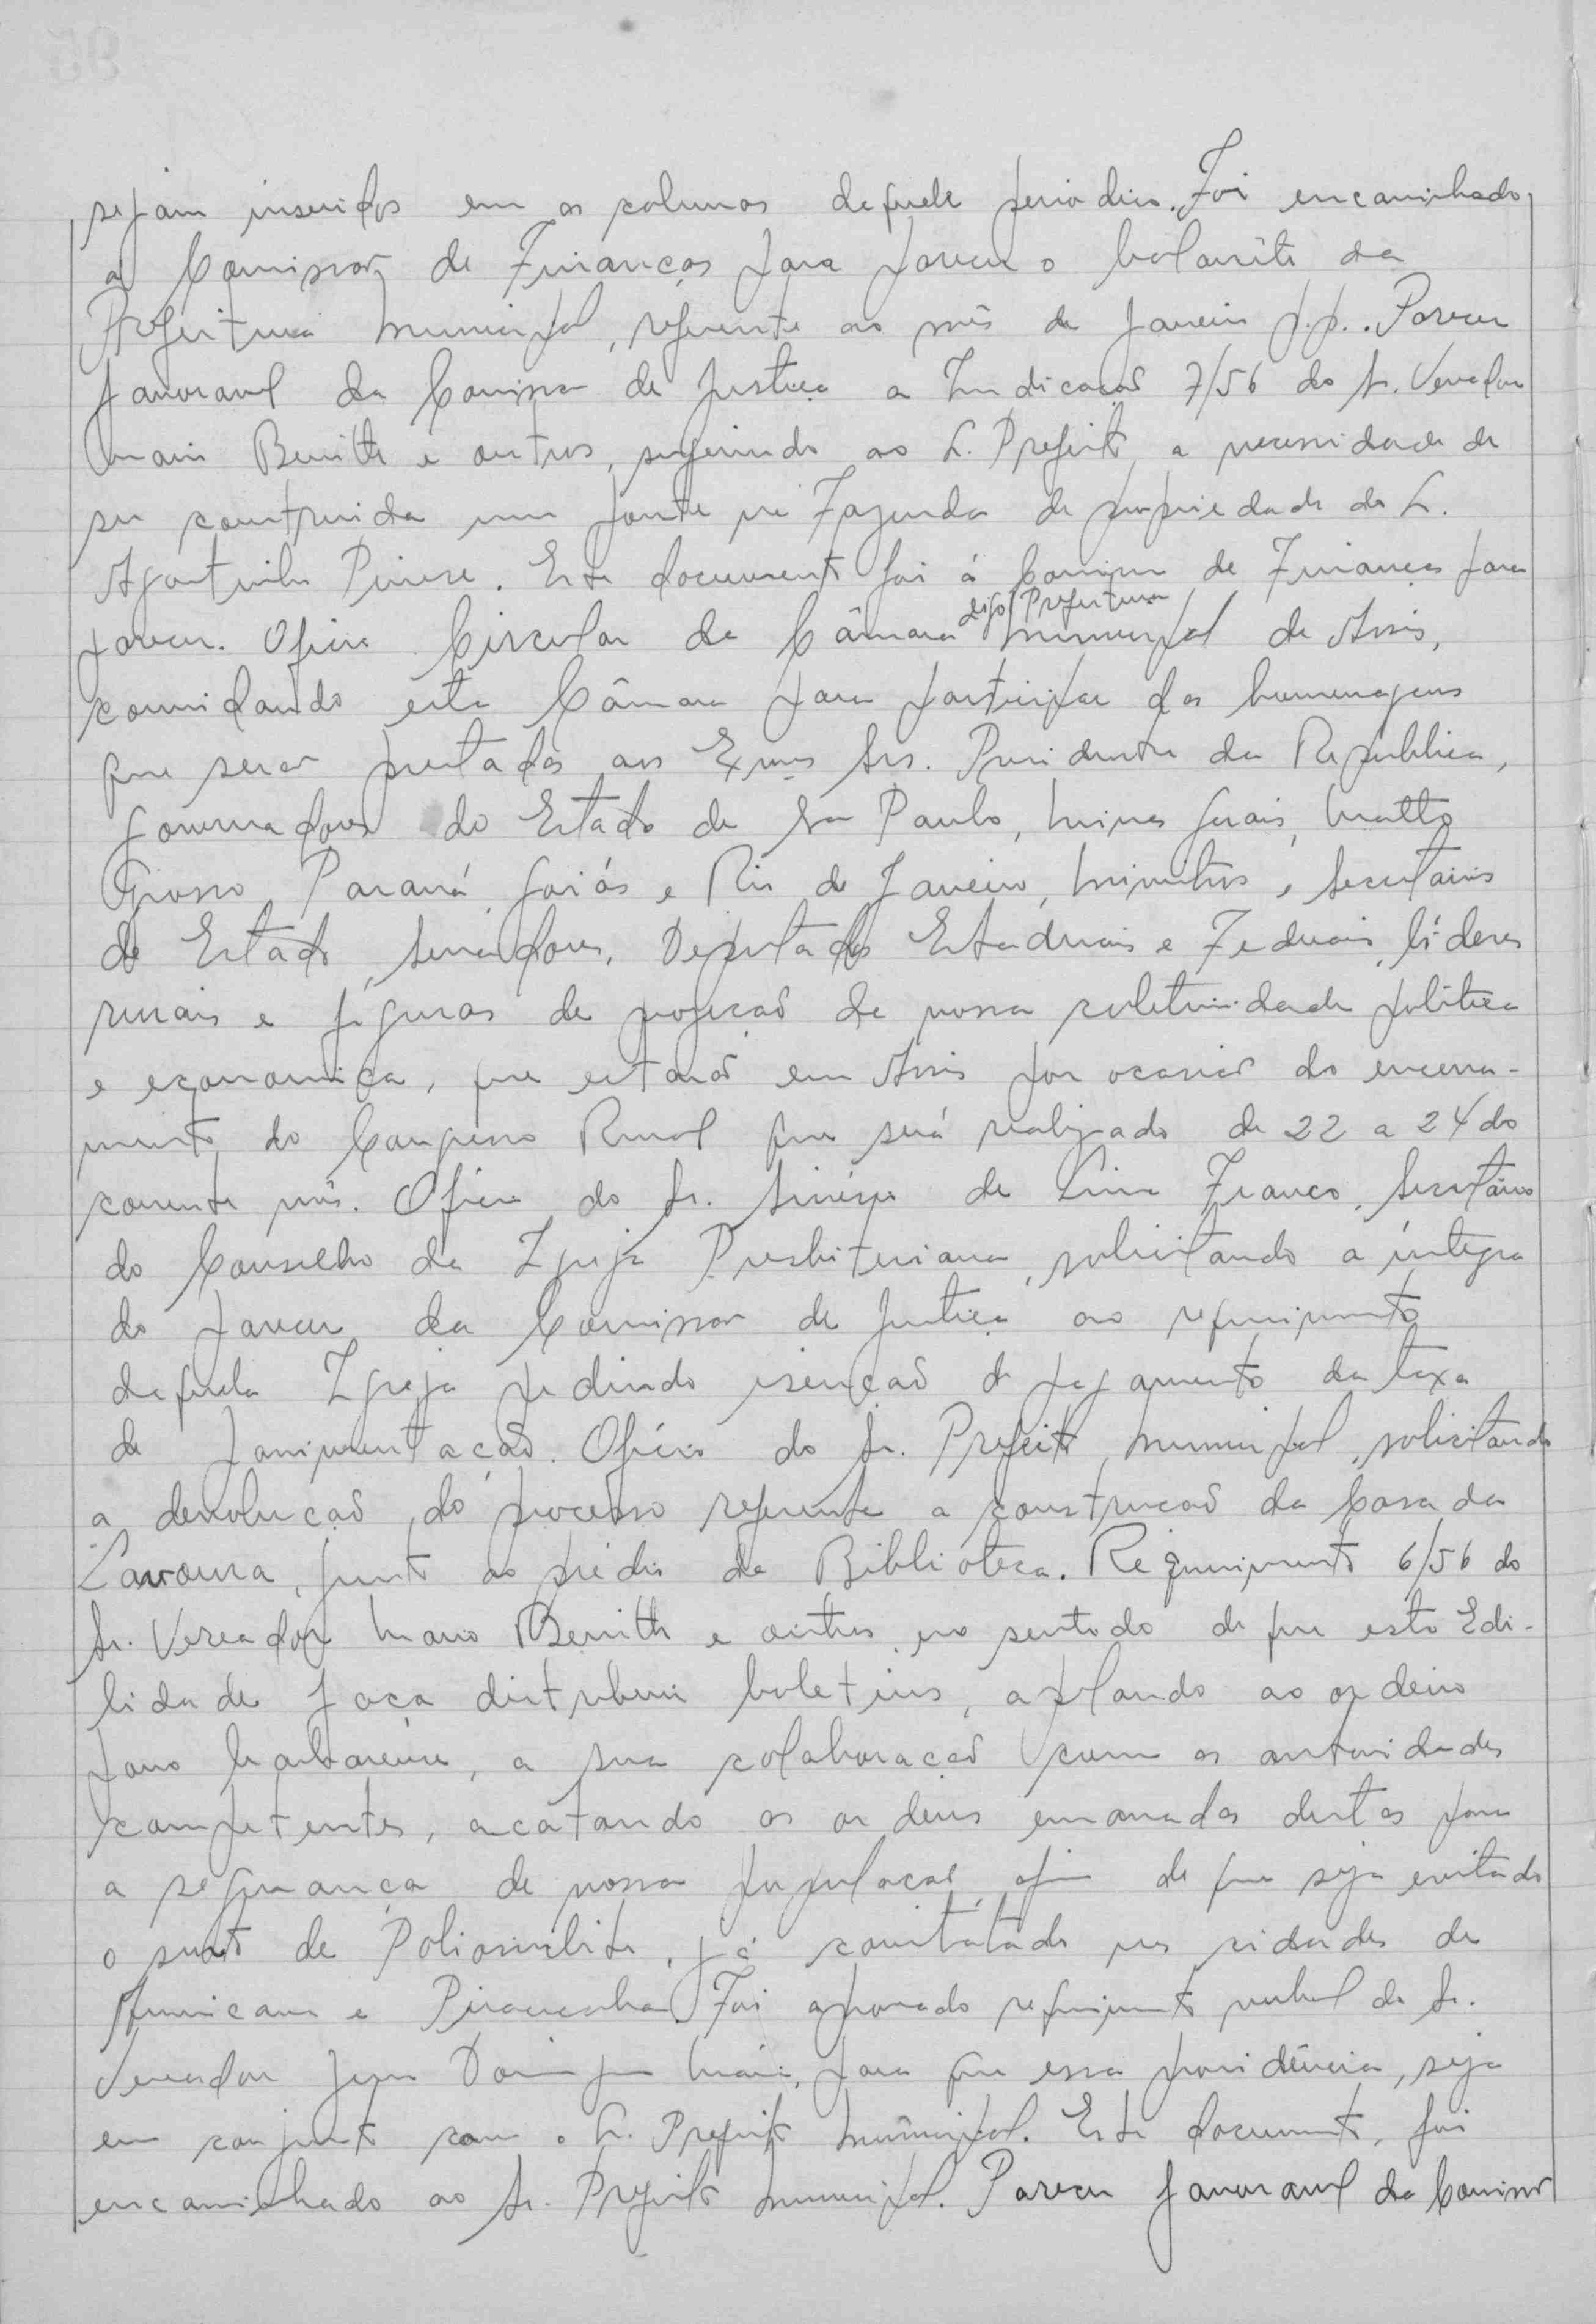 sejam inseridos em as colunas daquele periodico. Foi encaminhado
á Comissão de Finanças para parecer o balancête da
Prefeitura Municipal, referente ao mês de Janeiro p.p.. Parecer
favoravel da Comissão de Justiça a Indicação 7/56 do Sr. Vereador
Mario Benith e outros, sugerindo ao Sr. Prefeito, a necessidade de
ser construida uma ponte na Fazenda de propriedade do Sr.
Agostinho Pinese. Este documento foi á Comissão de Finanças para
parecer. Oficio Circular da Câmara digo Prefeitura Municipal de Assis,
convidando esta Câmara para participar das homenagens
que serão prestadas aos Exmos Srs. Presidente da Republica,
Governadores do Estado de São Paulo, Minas Gerais, Matto
Grosso, Paraná, Goiás e Rio de Janeiro, Ministros, Secretarios
de Estado, Senadores, Deputados Estaduais e Federais, líderes
rurais e figuras de projeção de nossa coletividade política
e economica, que estarão em Assis por ocasião do encerra-
mento do Congresso Rural que será realizado de 22 a 24 do
corrente mês. Oficio do Sr. Sinésio de Lima Franco, Secretário
do Conselho da Igreja Presbiteriana, solicitando a íntegra
do parecer da Comissão de Justiça ao requerimento
daquela Igreja pedindo isenção do pagamento da taxa
de pavimentação. Ofício do Sr. Prefeito Municipal, solicitando
a devolução do processo referente a construção da Casa da
Lavoura, junto ao prédio da Biblioteca. Requerimento 6/56 do
Sr. Vereador Mario Benith e outros, no sentido de que esta Edi-
lidade faça distribuir boletins, apelando ao ordeiro
povo barbarense, a sua colaboração com as autoridades
competentes, acatando as ordens emanadas destas para
a segurança de nossa população, afim de que seja evitado
o surto de Poliomielite, já constatado nas cidades de
Americana e Piracicaba. Foi aprovado requerimento verbal do Sr.
Vereador Maria, para que essa providência, seja
em conjunto com o Sr. Prefeito Municipal. Este documento, foi
encaminhado ao Sr. Prefeito Municipal. Parecer favoravel da Comissão